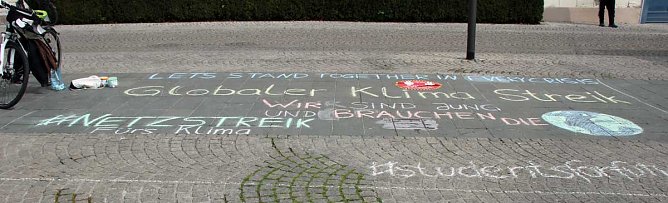 LETS STAND TOGETHER IN EVERY CRISIS!
GLOBALER KLIMA STREIK
WIR SIND JUNG
#NETZSTREIK UND BRAUCHEN DIE
FÜRS KLIMA
#studentsforfuture